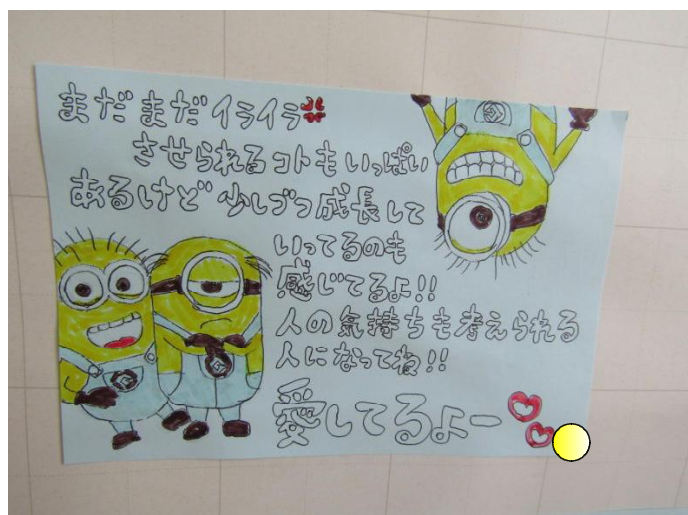 まだまだイライラ
させられるコトもいっぱい
あるけど少しづつ成長して
いってるのも
感じてるよ!!
人の気持ちも考えられる
人になってね!!
愛してるよー